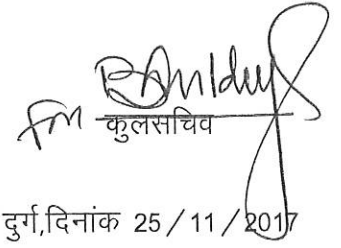 कुलसचिव
दुर्ग,दिनांक 25/11/2017